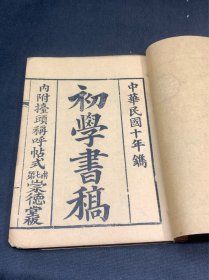 中華民國十年鐫
初學書稿
內附擡頭稱呼帖式
崇德堂板